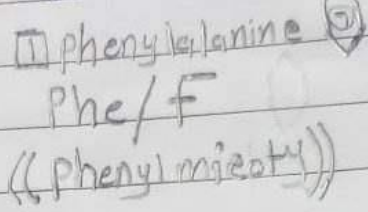 1 phenylalanine 2
Phe/F
((phenyl mieoty))